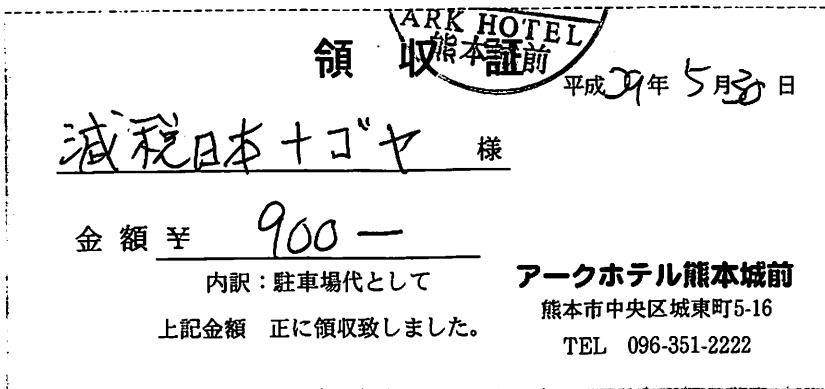 ARK HOTEL
熊本城前
領収証
平成29年5月30日
減税日本ナゴヤ 様
金額 ¥ 900ー
内訳：駐車場代として
上記金額 正に領収致しました。
アークホテル熊本城前
熊本市中央区城東町5-16
TEL 096-351-2222